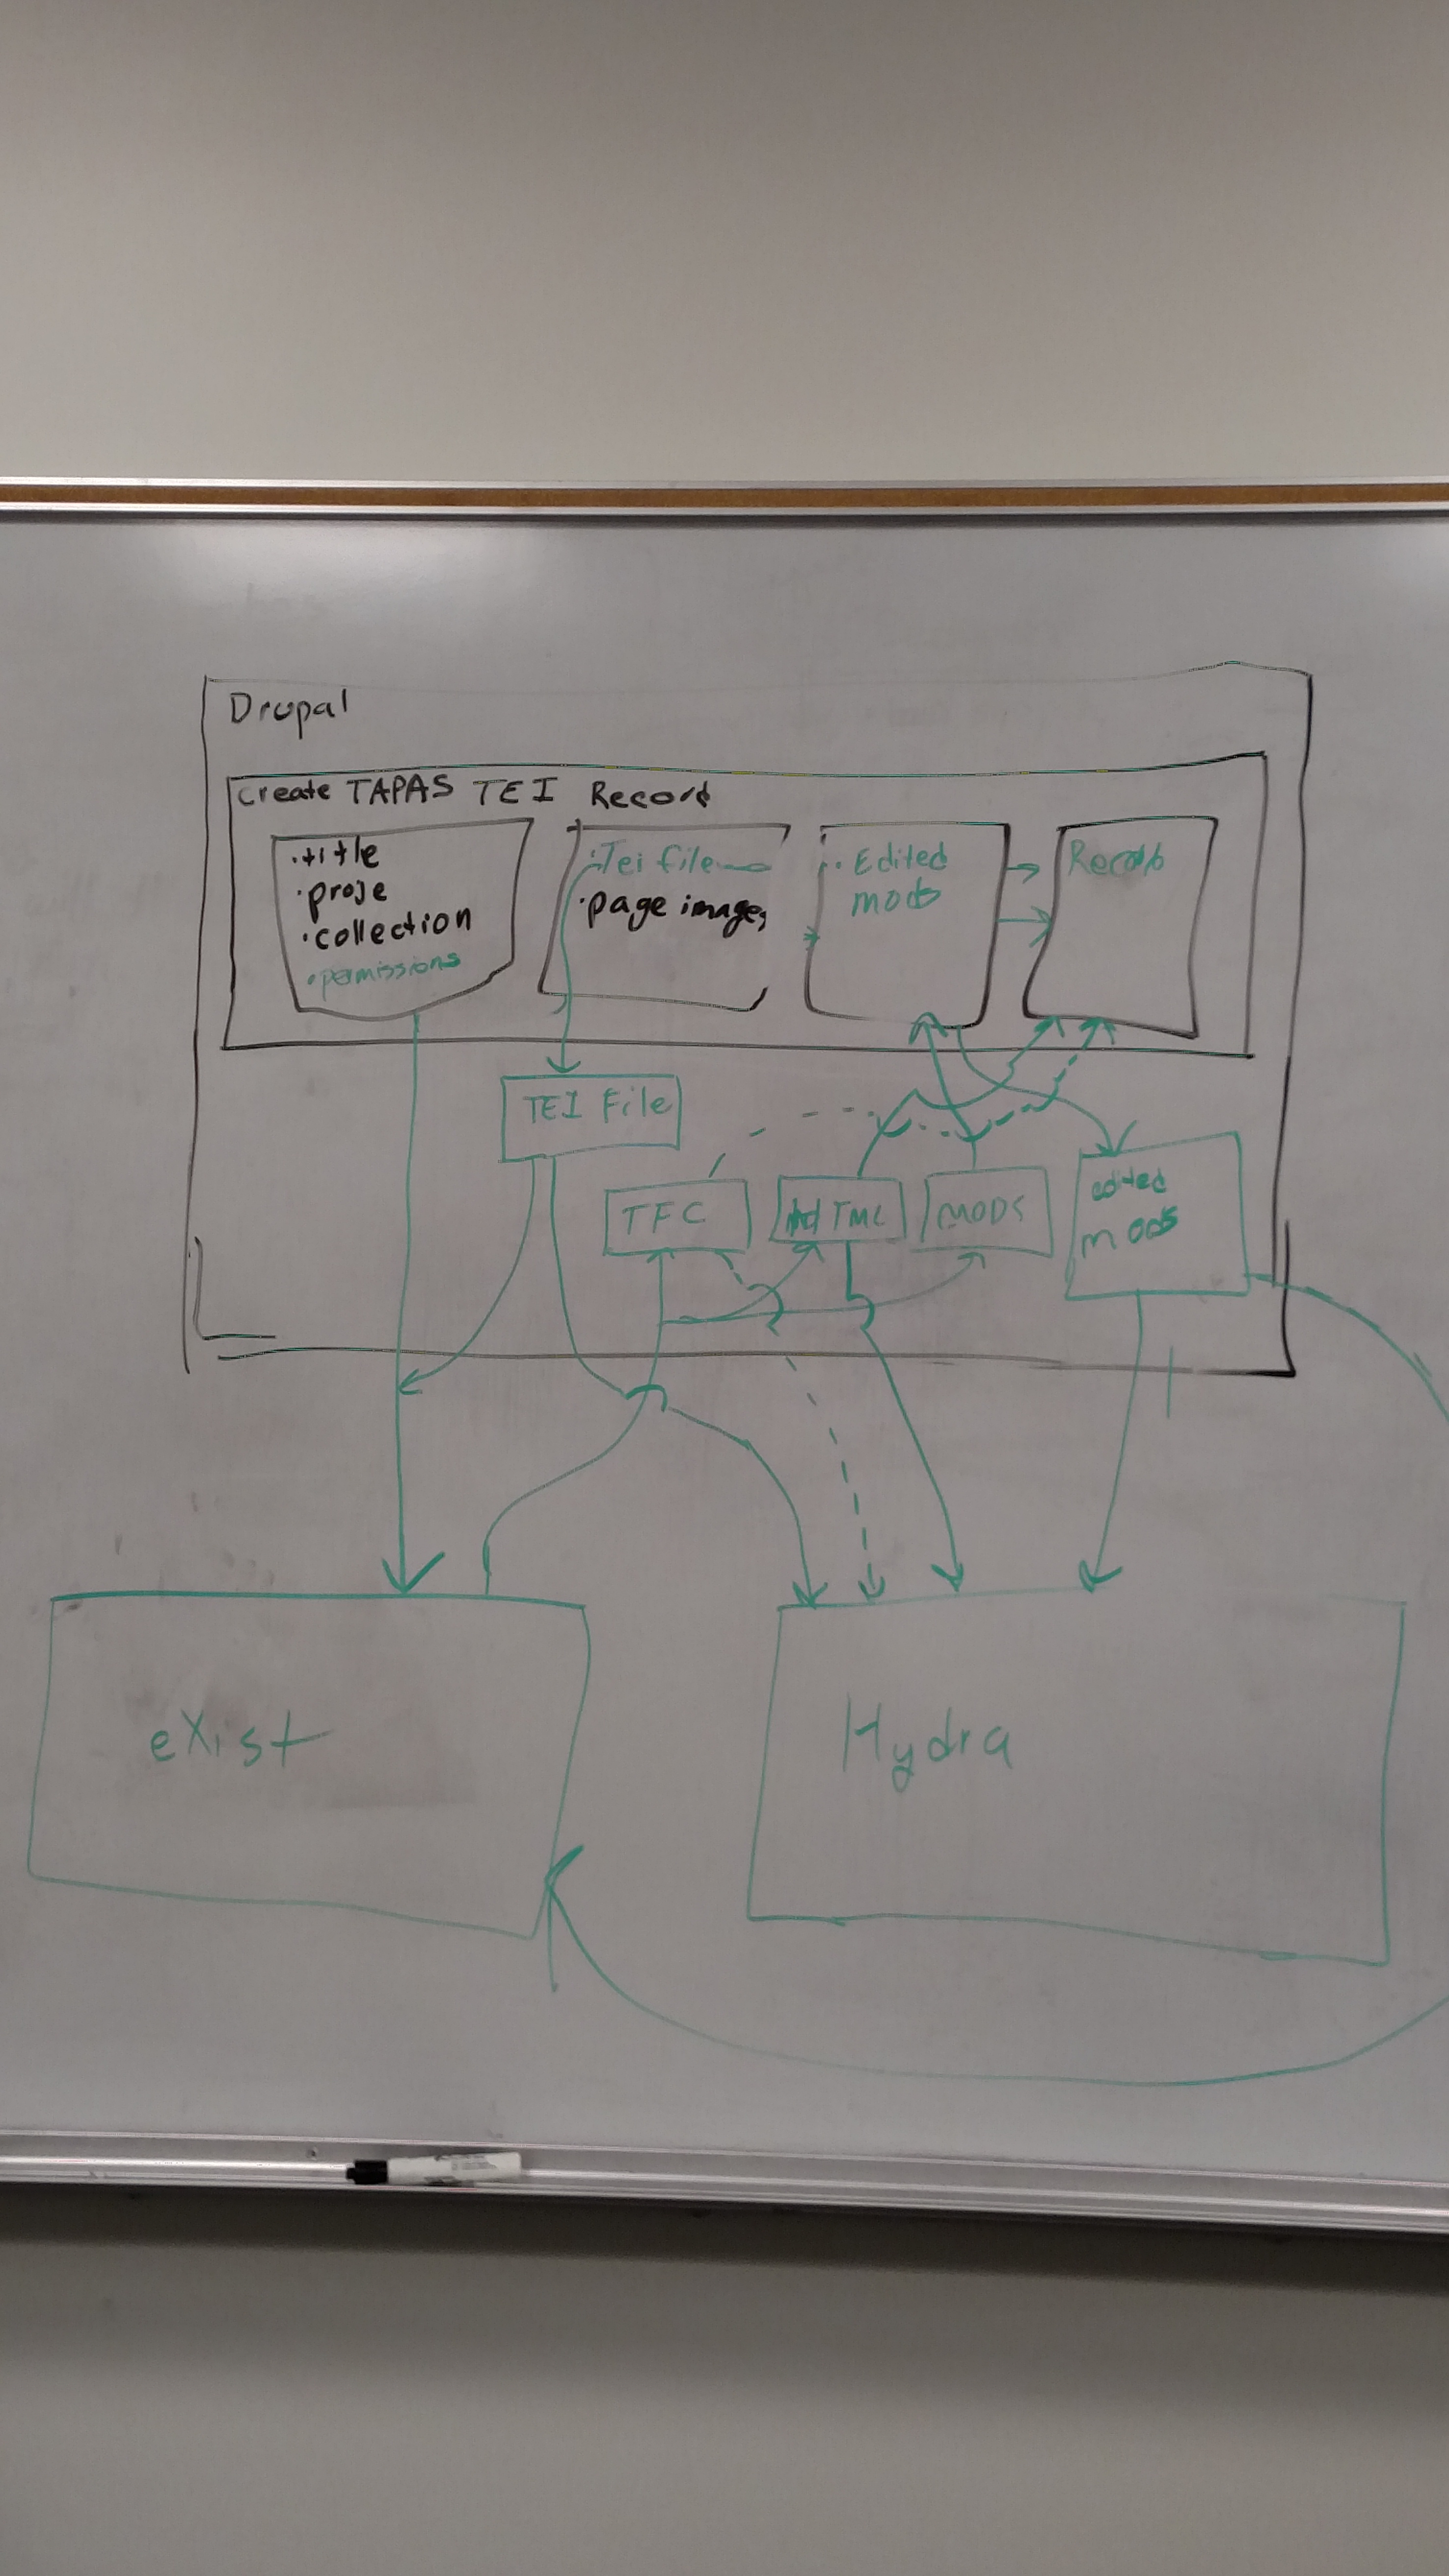 Drupal
Create TAPAS TEI Record
·title
·proje
·collection
·permissions
·Tei file
·page images
·Edited
mods
TEI File
TFC
HTML
MODS
edited
mods
eXist
Hydra